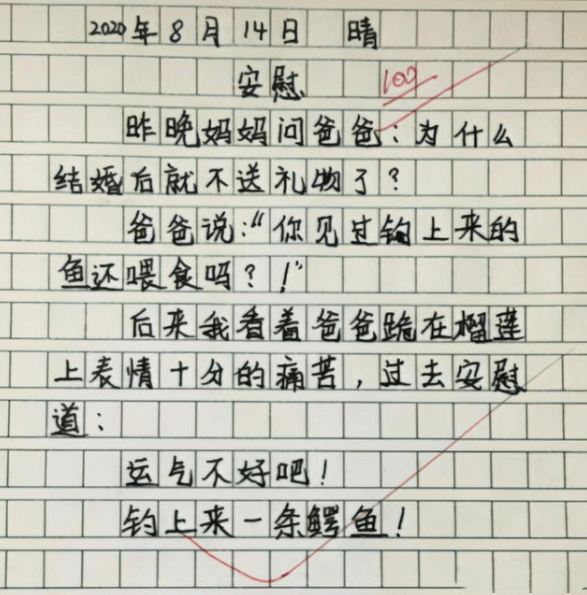 2020年8月14日 晴
安慰
100
昨晚妈妈问爸爸：为什么
结婚后就不送礼物了？
爸爸说："你见过钩上来的
鱼还喂食吗？！"
后来我看着爸爸跪在榴莲
上表情十分的痛苦，过去安慰
道：
运气不好吧！
钓上来一条鳄鱼！